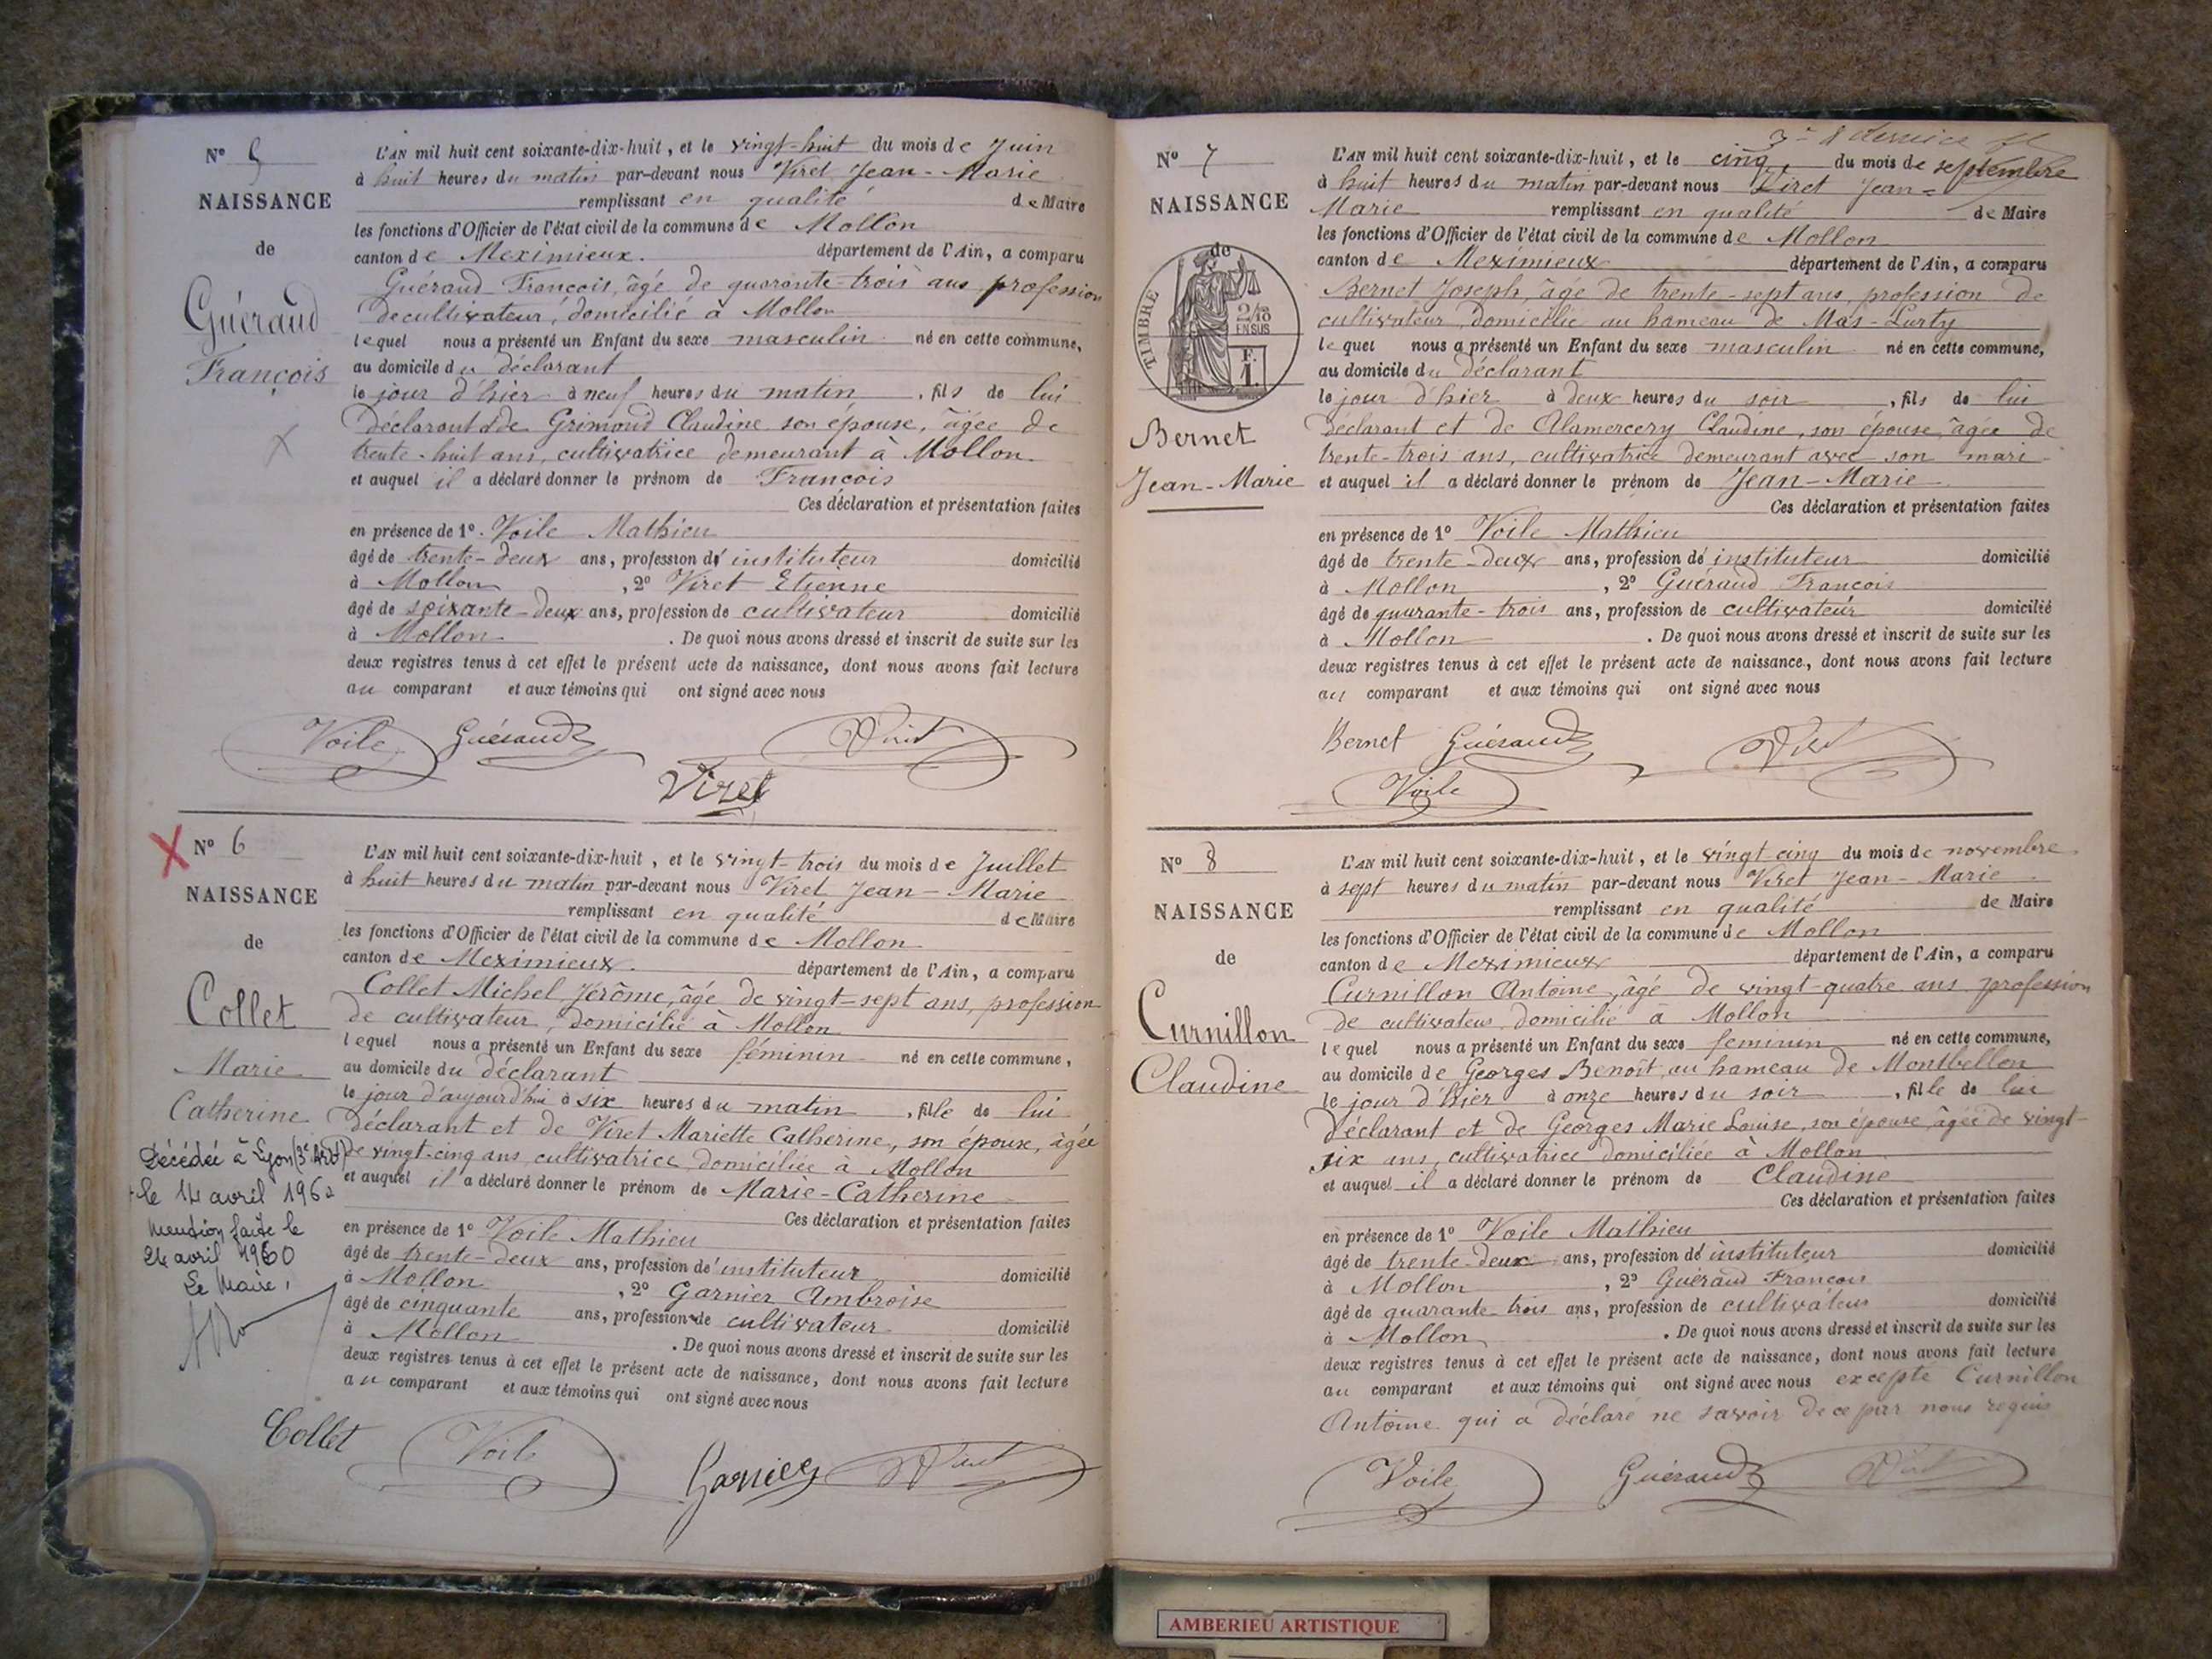 N° 5
NAISSANCE
de
Guéraud
François
L'AN mil huit cent soixante-dix-huit, et le vingt-huit du mois de Juin
à huit heures du matin par-devant nous Viret Jean-Marie
remplissant en qualité de Maire
les fonctions d'Officier de l'état civil de la commune de Mollon
canton de Meximieux. département de l'Ain, a comparu
Guéraud François, âgé de quarante-trois ans, profession
de cultivateur, domicilié à Mollon
lequel nous a présenté un Enfant du sexe masculin né en cette commune,
au domicile du déclarant
le jour d'hier à neuf heures du matin, fils de lui
déclarant et de Grimond Claudine son épouse, âgée de
trente-huit ans, cultivatrice demeurant à Mollon.
et auquel il a déclaré donner le prénom de François
Ces déclaration et présentation faites
en présence de 1° Voile Mathieu
âgé de trente-deux ans, profession d'instituteur domicilié
à Mollon, 2° Viret Etienne
âgé de soixante-deux ans, profession de cultivateur domicilié
à Mollon. De quoi nous avons dressé et inscrit de suite sur les
deux registres tenus à cet effet le présent acte de naissance, dont nous avons fait lecture
au comparant et aux témoins qui ont signé avec nous
Voile Guéraud Viret
Viret
X N° 6
NAISSANCE
de
Collet
Marie
Catherine
Décédée à Lyon (3e Ardt)
le 14 avril 1960
Mention faite le
24 avril 1960
Le Maire,
L'AN mil huit cent soixante-dix-huit, et le vingt-trois du mois de Juillet
à huit heures du matin par-devant nous Viret Jean-Marie
remplissant en qualité de Maire
les fonctions d'Officier de l'état civil de la commune de Mollon
canton de Meximieux. département de l'Ain, a comparu
Collet Michel Jérôme, âgé de vingt-sept ans, profession
de cultivateur, domicilié à Mollon
lequel nous a présenté un Enfant du sexe féminin né en cette commune,
au domicile du déclarant
le jour d'aujourd'hui à six heures du matin, fille de lui
déclarant et de Viret Mariette Catherine, son épouse, âgée
de vingt-cinq ans, cultivatrice, domiciliée à Mollon
et auquel il a déclaré donner le prénom de Marie-Catherine
Ces déclaration et présentation faites
en présence de 1° Voile Mathieu
âgé de trente-deux ans, profession d'instituteur domicilié
à Mollon, 2° Garnier Ambroise
âgé de cinquante ans, profession de cultivateur domicilié
à Mollon. De quoi nous avons dressé et inscrit de suite sur les
deux registres tenus à cet effet le présent acte de naissance, dont nous avons fait lecture
au comparant et aux témoins qui ont signé avec nous
Collet Voile Garnier Viret
N° 7
NAISSANCE
de
TIMBRE
2/10
EN SUS
F.
1.
Bernet
Jean-Marie
L'AN mil huit cent soixante-dix-huit, et le cinq, du mois de septembre
à huit heures du matin par-devant nous Viret Jean-
Marie remplissant en qualité de Maire
les fonctions d'Officier de l'état civil de la commune de Mollon
canton de Meximieux département de l'Ain, a comparu
Bernet Joseph, âgé de trente-sept ans, profession de
cultivateur, domicilié au hameau de Mas-Lurty
lequel nous a présenté un Enfant du sexe masculin né en cette commune,
au domicile du déclarant
le jour d'hier à deux heures du soir, fils de lui
déclarant et de Alamercery Claudine, son épouse, âgée de
trente-trois ans, cultivatrice demeurant avec son mari
et auquel il a déclaré donner le prénom de Jean-Marie
Ces déclaration et présentation faites
en présence de 1° Voile Mathieu
âgé de trente-deux ans, profession d'instituteur domicilié
à Mollon, 2° Guéraud François
âgé de quarante-trois ans, profession de cultivateur domicilié
à Mollon. De quoi nous avons dressé et inscrit de suite sur les
deux registres tenus à cet effet le présent acte de naissance, dont nous avons fait lecture
au comparant et aux témoins qui ont signé avec nous
Bernet Guéraud Viret
Voile
N° 8
NAISSANCE
de
Curnillon
Claudine
L'AN mil huit cent soixante-dix-huit, et le vingt cinq du mois de novembre
à sept heures du matin par-devant nous Viret Jean-Marie
remplissant en qualité de Maire
les fonctions d'Officier de l'état civil de la commune de Mollon
canton de Meximieux département de l'Ain, a comparu
Curnillon Antoine, âgé de vingt-quatre ans profession
de cultivateur, domicilié à Mollon
lequel nous a présenté un Enfant du sexe féminin né en cette commune,
au domicile de Georges Benoît, au hameau de Montbellon
le jour d'hier à onze heures du soir, fille de lui
déclarant et de Georges Marie Louise, son épouse, âgée de vingt-
six ans, cultivatrice domiciliée à Mollon
et auquel il a déclaré donner le prénom de Claudine
Ces déclaration et présentation faites
en présence de 1° Voile Mathieu
âgé de trente-deux ans, profession d'instituteur domicilié
à Mollon, 2° Guéraud François
âgé de quarante trois ans, profession de cultivateur domicilié
à Mollon. De quoi nous avons dressé et inscrit de suite sur les
deux registres tenus à cet effet le présent acte de naissance, dont nous avons fait lecture
au comparant et aux témoins qui ont signé avec nous excepté Curnillon
Antoine qui a déclaré ne savoir de ce par nous requis
Voile Guéraud Viret
AMBERIEU ARTISTIQUE